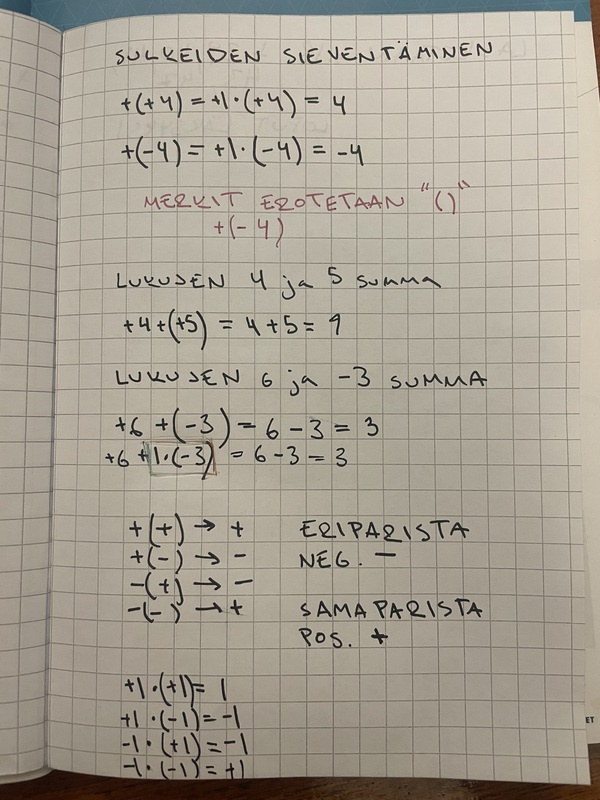 SULKEIDEN SIEVENTÄMINEN
+(+4) = +1·(+4) = 4
+(-4) = +1·(-4) = -4
MERKIT EROTETAAN "()"
+(-4)
LUKUJEN 4 ja 5 summa
+4+(+5) = 4+5 = 9
LUKUJEN 6 ja -3 SUMMA
+6 +(-3) = 6-3 = 3
+6 +1·(-3) = 6-3 = 3
+(+) → + ERIPARISTA
+(-) → - NEG. -
-(+) → -
-(-) → + SAMAPARISTA
POS. +
+1·(+1) = 1
+1·(-1) = -1
-1·(+1) = -1
-1·(-1) = +1
ET